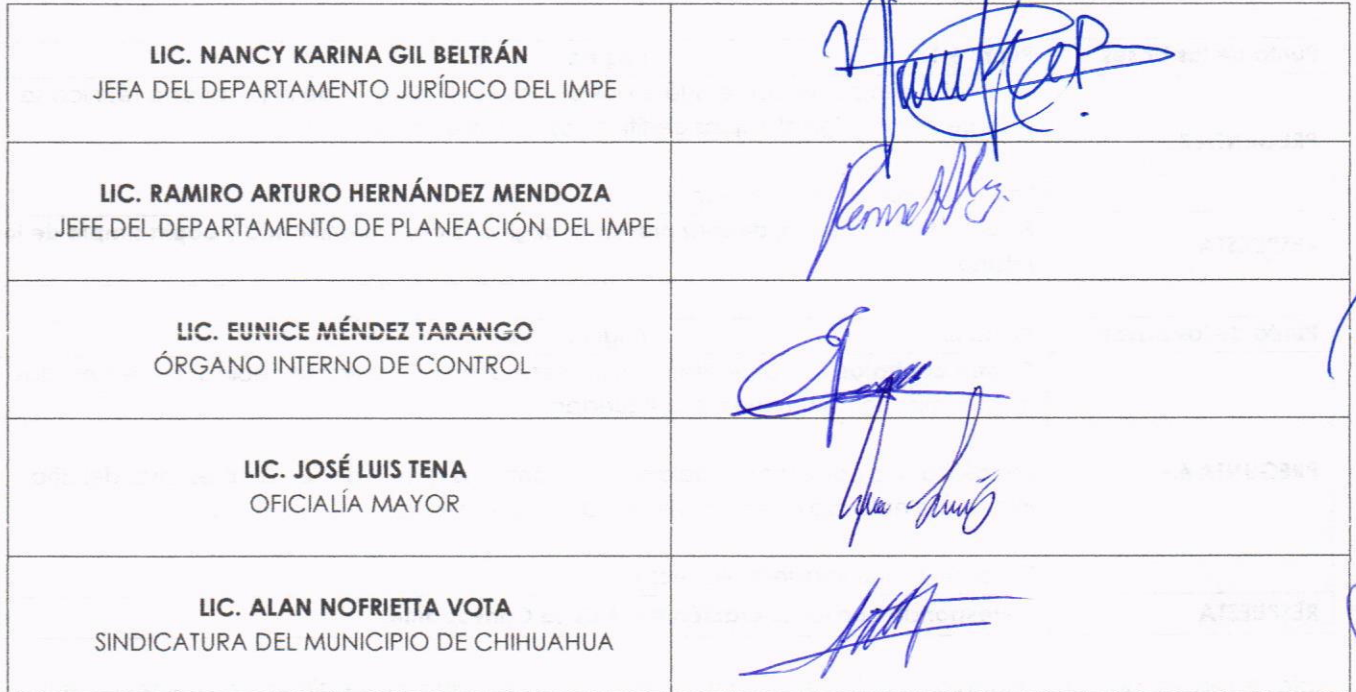 LIC. NANCY KARINA GIL BELTRÁN
JEFA DEL DEPARTAMENTO JURÍDICO DEL IMPE
LIC. RAMIRO ARTURO HERNÁNDEZ MENDOZA
JEFE DEL DEPARTAMENTO DE PLANEACIÓN DEL IMPE
LIC. EUNICE MÉNDEZ TARANGO
ÓRGANO INTERNO DE CONTROL
LIC. JOSÉ LUIS TENA
OFICIALÍA MAYOR
LIC. ALAN NOFRIETTA VOTA
SINDICATURA DEL MUNICIPIO DE CHIHUAHUA